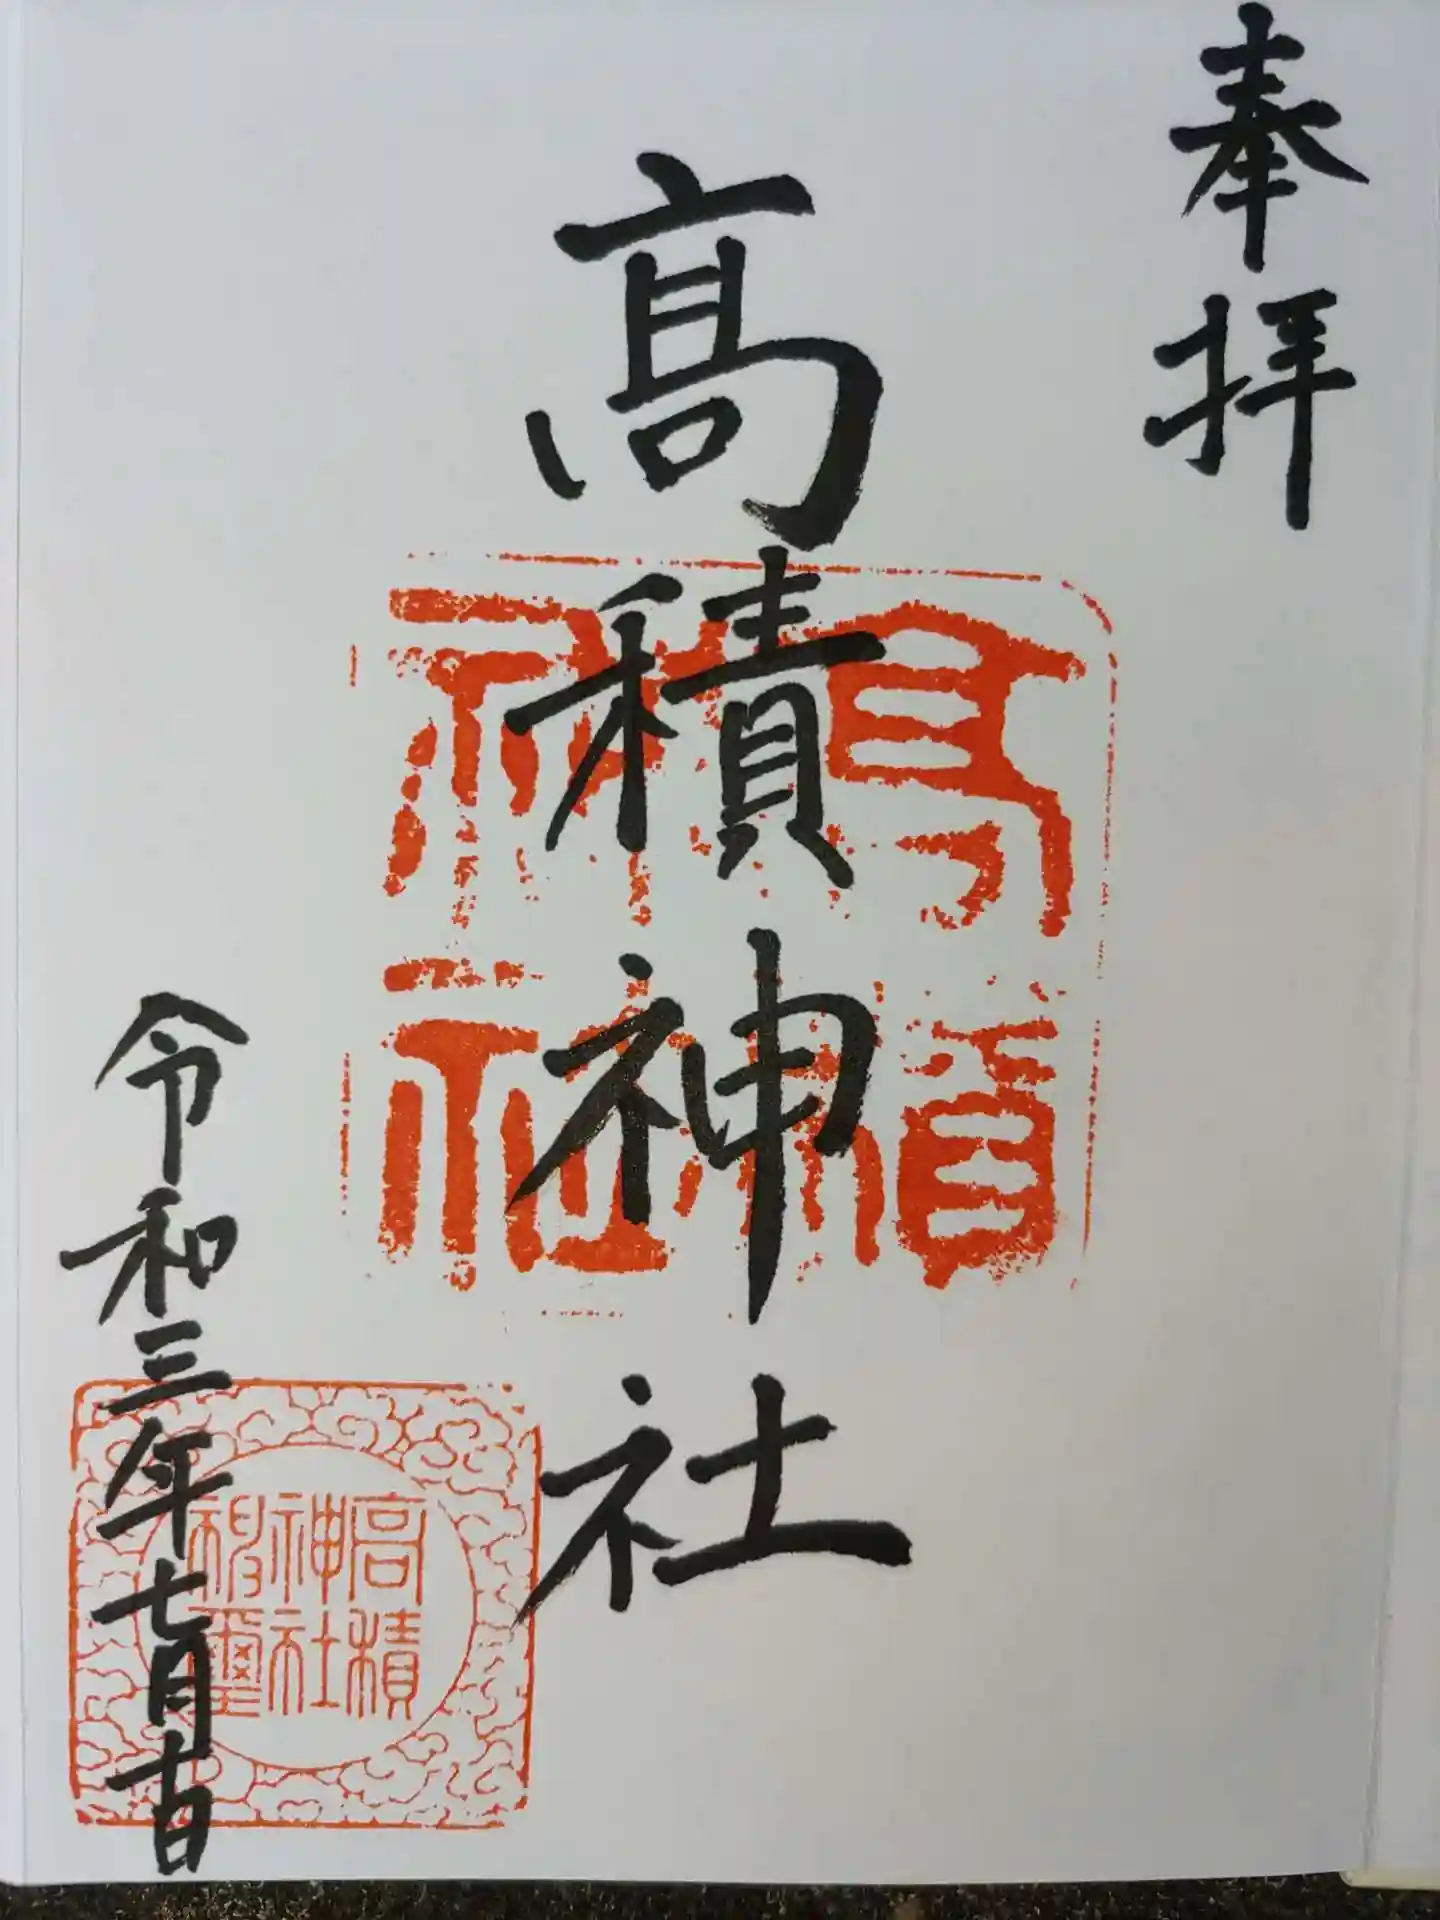 奉拝
髙積神社
令和三年七月十日
髙積
神社
高積
神社